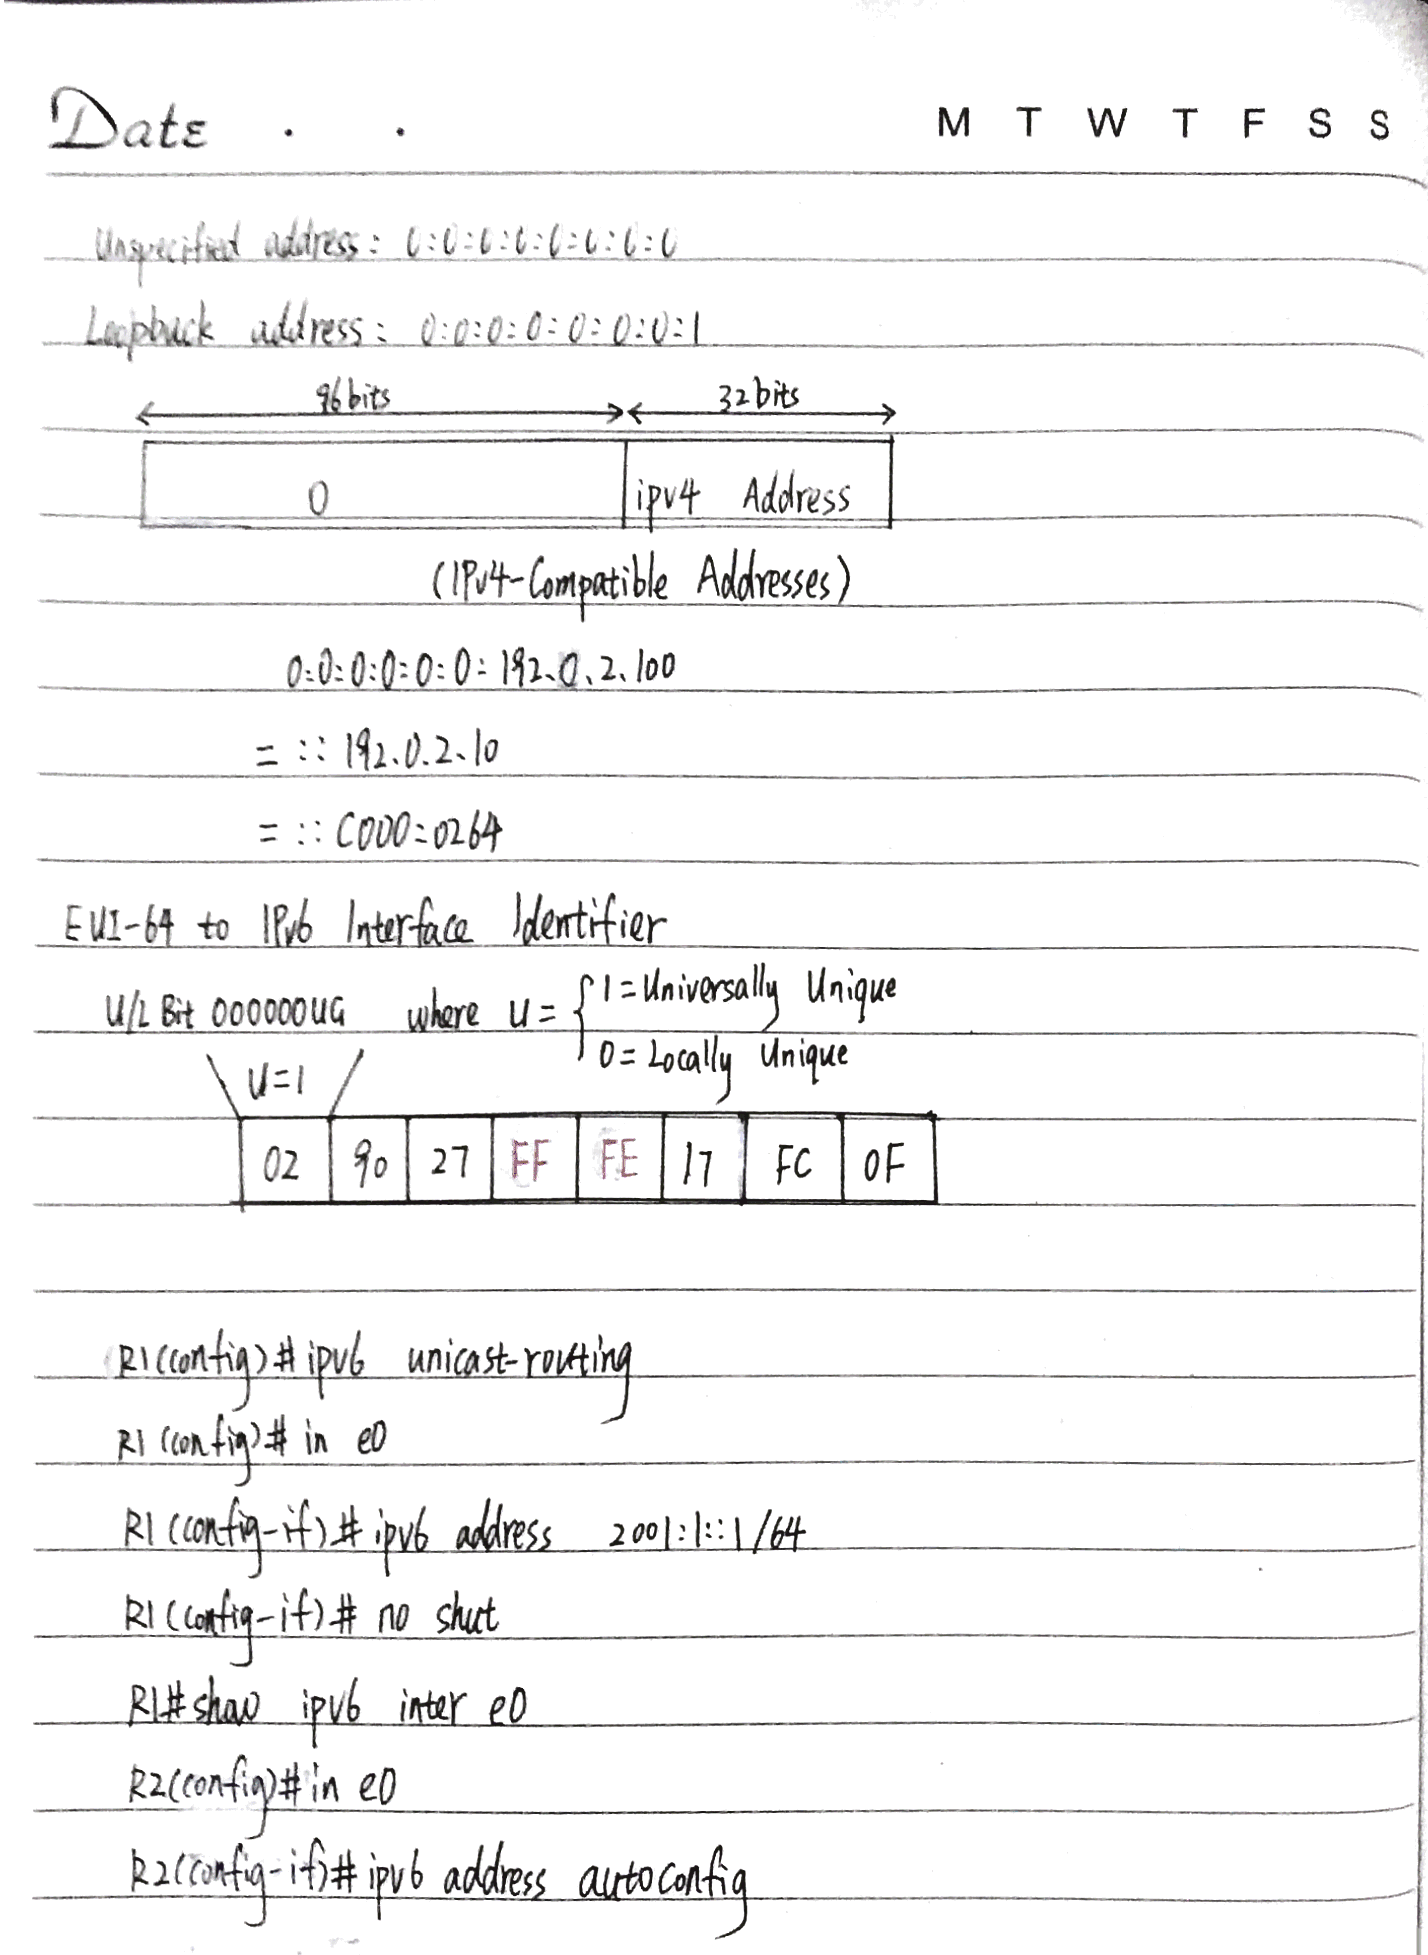 Date . .
M T W T F S S
Unspecified address: 0:0:0:0:0:0:0:0
Loopback address: 0:0:0:0:0:0:0:1
96bits 32bits
0 ipv4 Address
(IPv4-Compatible Addresses)
0:0:0:0:0:0:192.0.2.100
= ::192.0.2.10
= ::C000:0264
EUI-64 to IPv6 Interface Identifier
U/L Bit 000000UG where U= { 1=Universally Unique
0=Locally Unique
U=1
02 90 27 FF FE 17 FC 0F
R1(config)# ipv6 unicast-routing
R1(config)# in e0
R1(config-if)# ipv6 address 2001:1::1/64
R1(config-if)# no shut
R1# show ipv6 inter e0
R2(config)# in e0
R2(config-if)# ipv6 address autoconfig